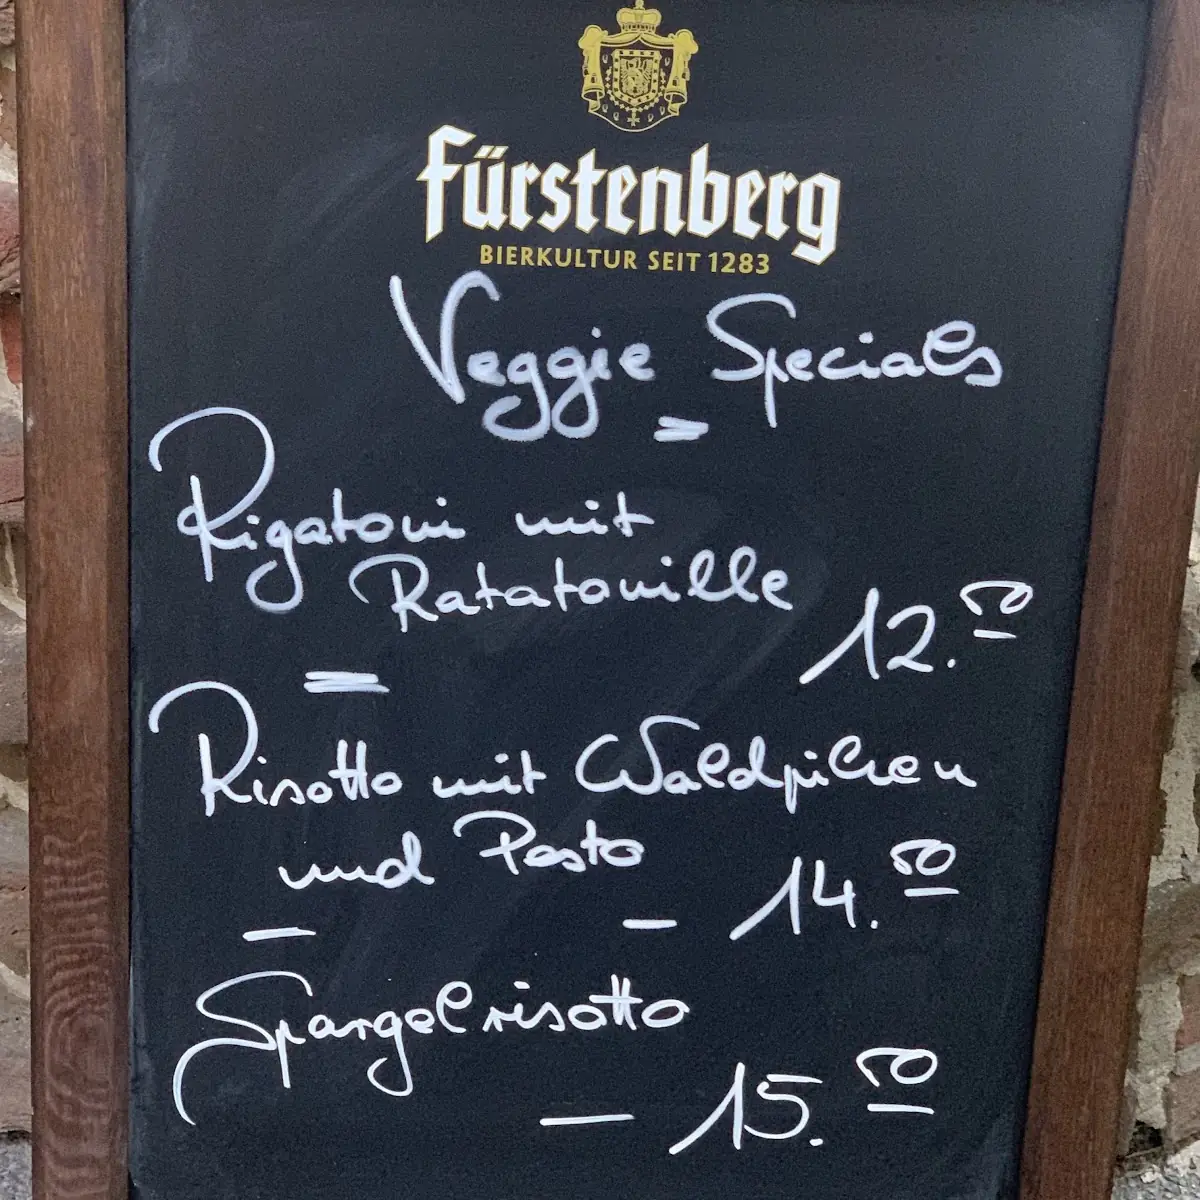 Fürstenberg
BIERKULTUR SEIT 1283
Veggie Specials
Rigatoni mit
Ratatouille
12.50
Risotto mit Waldpilzen
und Pesto
14.50
Spargelrisotto
15.50